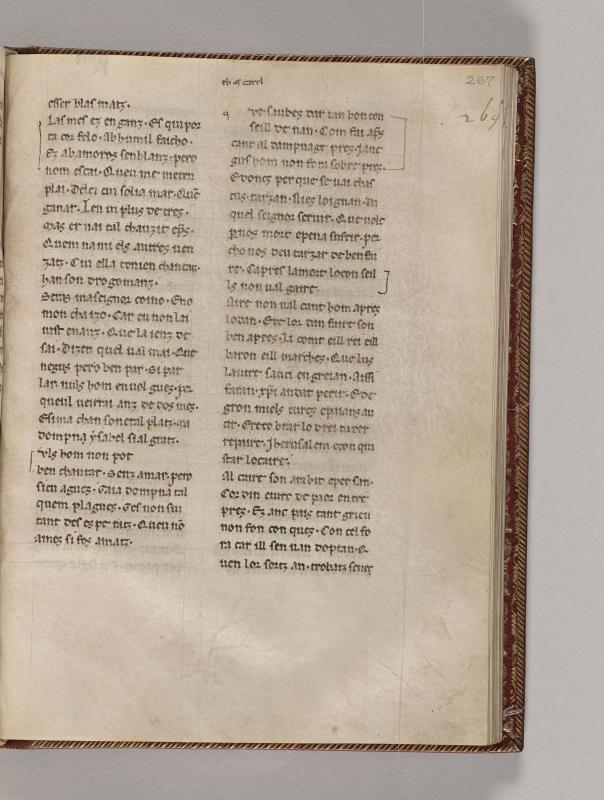 esser blas matz.
Las mes ez en ganz. Es qui por
ta cor felo. Ab humil faicho.
Ez ab amoros senblanz. pero
nom estai. Queu me meten
plai. De lei cui solia mar. Que
ganar. Len in plus de tres.
Mas er nai tal chauzit eps.
Quem na mi els autres uen
zatz. Cui ella tenien chantar.
han son drogomanz.
Senz ma seignor coino. Eno
mon cha izo. Car eu non lai
uist enanz. Que la ienz de
sai. Dizen quel ual mai. Que
negus pero ben par. Si pat
lar nuls hom en uol gues. per
queul ueirai anz de dos mes.
Esi ma chan son etal platz. na
dompna ysabel si al gratz.
uls hom non pot
ben chantar. Senz amar. pero
sieu agues. Gaia dompna tal
quem plagues. Ges non sui
tant des es pe ratz. Queu no
ames si fos amatz.
267
267
q
ue saubes dar tan bon con
seill de nan. Com fai aps
cant al dampnage pres. Jane
gus hom non fora sobre pres.
E doncs per que se uai chas
cus. tarzan. Sliez loignan. Da
quel seignor seruir. Que uolc
p nos mort e pena sufrir. per
cho nos deu tarzar de ben fai
re. Capres la mort locon seil
ls non ual gaire.
Aire non ual cant hom apres
lo dan. Ete lor dan faire son
ben apres. La comt eill rei eill
baron eill marches. Que lus
lautre sauci en greian. Aissi
faran. xpi andat perir. E de
gron miels turcs e paians au
cir. Ereco brar lo dreitu rer
repaire. Jherusalem e con qui
star lo caire.
Al caire son arabit e per san.
Cor din eure de paor entre
pres. Ez anc pais tant greu
non fon con ques. Con cel fo
ra car ill sen uan doptan. Q
uen lor sortz an. trobatz seues